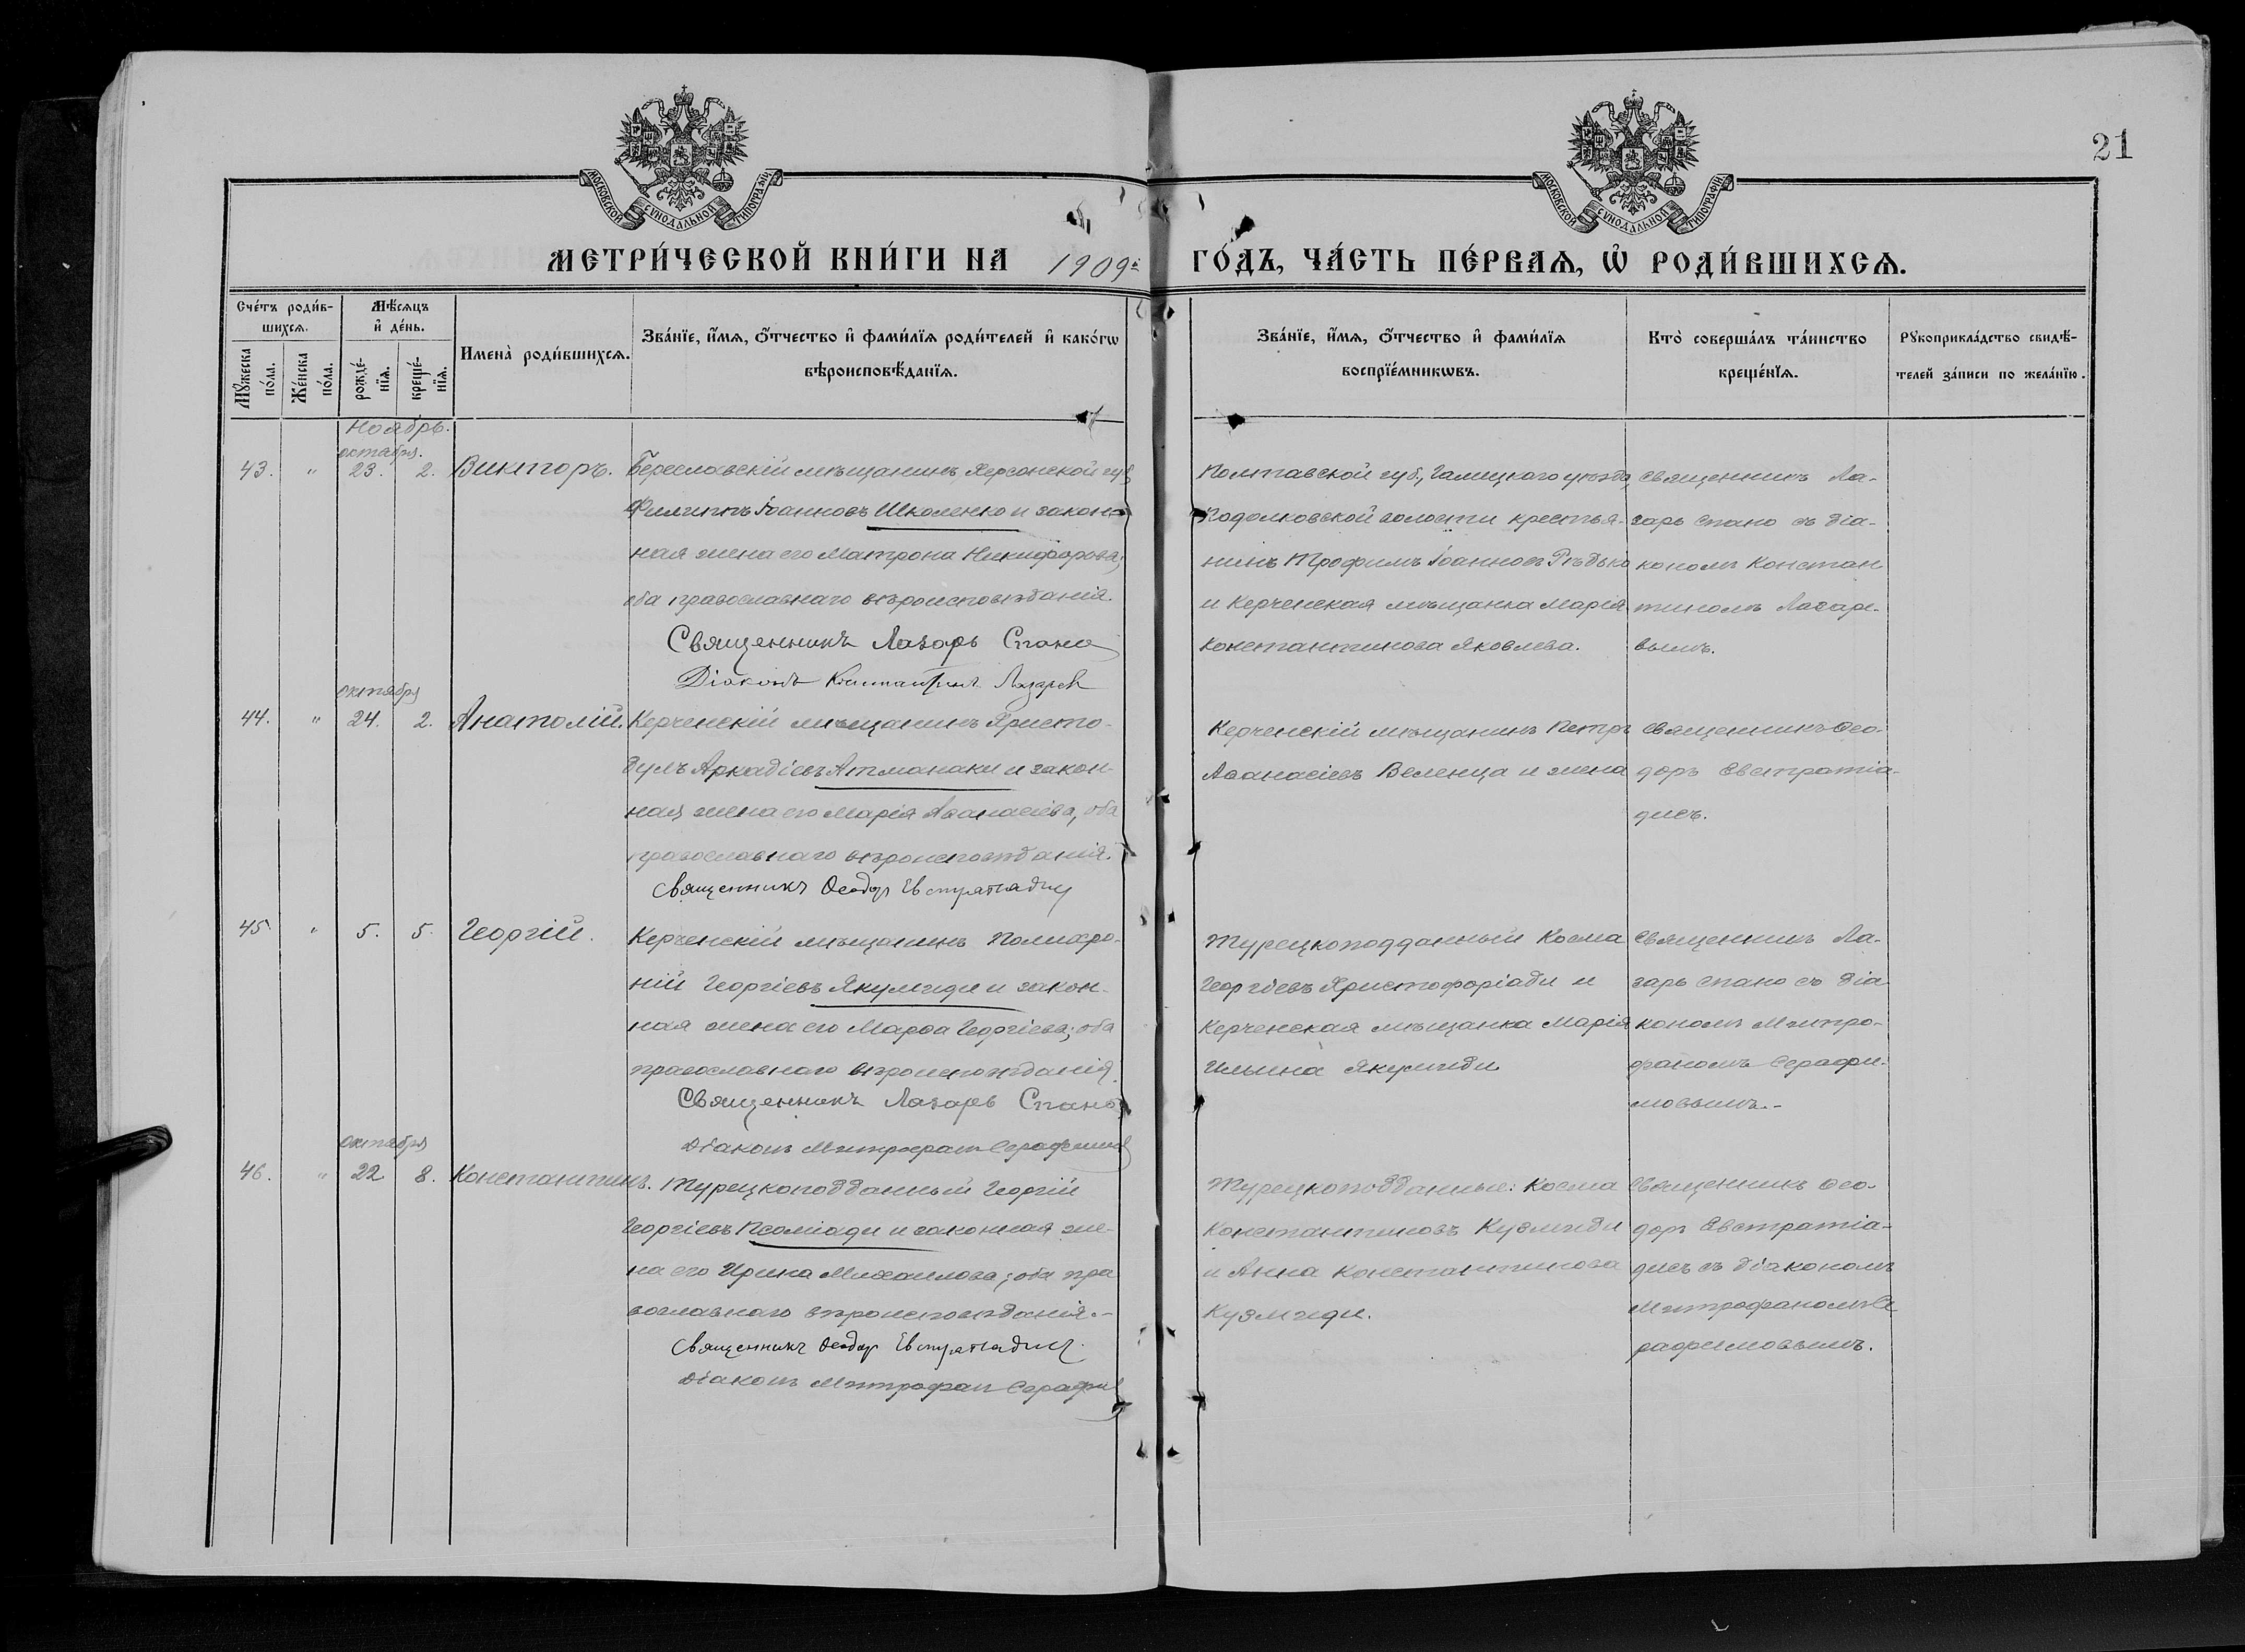 21
МОСКОВСКОЙ СУНОДАЛЬНОЙ ТИПОГРАФІИ
МОСКОВСКОЙ СУНОДАЛЬНОЙ ТИПОГРАФІИ
МЕТРИ́ЧЕСКОЙ КНИ́ГИ НА 1909й ГО́ДЪ, ЧА́СТЬ ПЕ́РВАѦ, Ѡ҆ РОДИ́ВШИХСѦ.
Сче́тъ роди́в-
шихсѧ.
Мꙋ́жеска
по́ла.
Же́нска
по́ла.
Мѣ́сѧцъ
и҆ де́нь.
рожде́-
нїѧ.
креще́-
нїѧ.
Имена̀ роди́вшихсѧ.
Зва́нїе, и҆́мѧ, ѻ҆́тчество и҆ фами́лїѧ роди́телей и҆ како́гѡ
вѣроисповѣ́данїѧ.
Зва́нїе, и҆́мѧ, ѻ҆́тчество и҆ фами́лїѧ
воспрїе́мникѡвъ.
Кто̀ соверша́лъ та́инство
креще́нїѧ.
Рꙋкоприкла́дство свидѣ́-
телей за́писи по жела́нїю.
Ноябрь.
октября.
43. " 23. 2. Викторъ.
Береславскій мѣщанинъ Херсонской губ
Филиппъ Іоанновъ Школенко и закон-
ная жена его Матрона Никифорова;
оба православнаго вѣроисповѣданія.
Священникъ Лазарь Спано
Діаконъ Константинъ Лазарев
Полтавской губ., Гамецкого уѣзда,
Подолковской волости крестья-
нинъ Трофимъ Іоанновъ Рѣдько
и Керченская мѣщанка Марія
Константинова Яковлева.
Священникъ Ла-
зарь Спано съ діа-
кономъ Констан
тиномъ Лазаре-
вымъ.
октября
44. " 24. 2. Анатолій.
Керченскій мѣщанинъ Христо-
дулъ Аркадіевъ Атманаки и закон-
ная жена его Марія Аѳанасіева, оба
православнаго вѣроисповѣданія.
Священникъ Ѳеодоръ Евстратіадис
Керченскій мѣщанинъ Петръ
Аѳанасіевъ Веленца и жена
Священникъ Ѳео-
доръ Евстратіа-
дисъ.
45 " 5. 5. Георгій.
Керченскій мѣщанинъ Полихро-
ній Георгіевъ Якулиди и закон-
ная жена его Марѳа Георгіева; оба
православнаго вѣроисповѣданія.
Священникъ Лазарь Спано
Діаконъ Митрофанъ Серафимов
Турецкоподданный Косма
Георгіевъ Христофоріади и
Керченская мѣщанка Марія
Ильина Якулиди
Священникъ Ла-
зарь Спано съ діа
кономъ Митро-
фаномъ Серафи-
мовымъ.-
октября
46. " 22 8. Константинъ.
Турецкоподданный Георгій
Георгіевъ Псоміади и законная же-
на его Ирина Михаилова; оба пра
вославнаго вѣроисповѣданія.-
Священникъ Ѳеодоръ Евстратіадис.
Діаконъ Митрофанъ Серафи
Турецкоподданные: Косма
Константиновъ Кузлиди
и Анна Константинова
Кузлиди.
Священникъ Ѳео-
доръ Евстратіа-
дисъ съ діакономъ
Митрофаномъ Се
рафимовымъ.